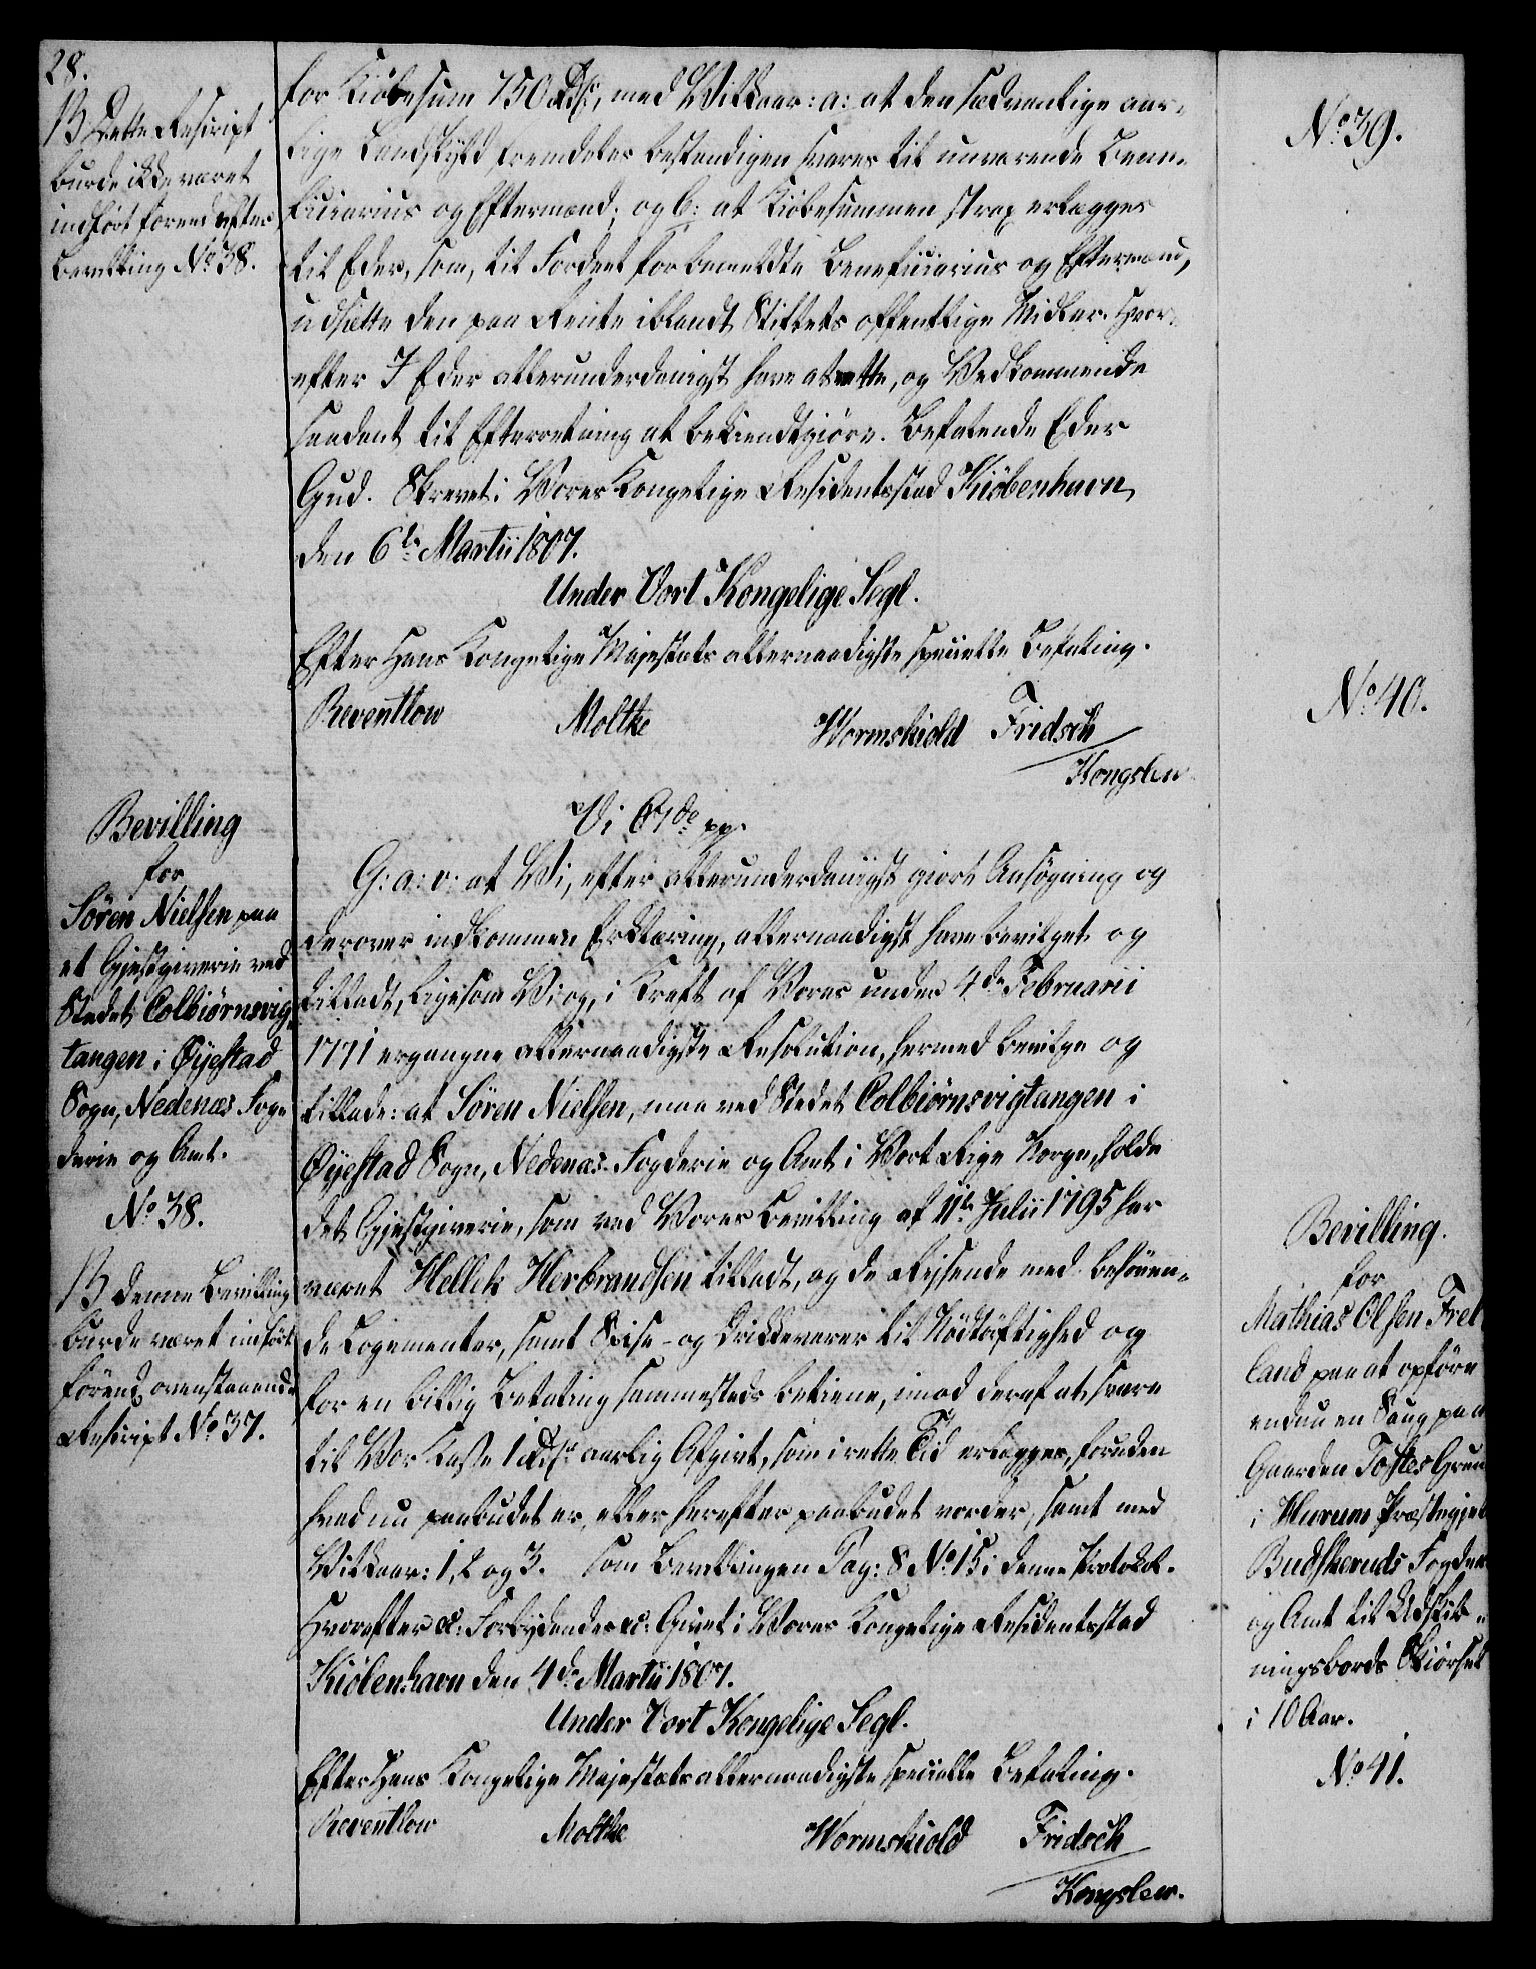 28.
NB Dette Rescript
burde ikke været
indført førend efter
Bevilling No 38.
for Kiöbesum 750 Rdlr, med Vilkaar: a: at den sædvanlige aar-
lige Landskyld fremdeles bestandigen svares til nuværende Bene-
ficiarius og Eftermænd; og b: at Kiöbesummen strax erlægges
til Eder, som, til Fordeel for bemeldte Beneficiarius og Eftermænd,
udsætte den paa Rente iblandt Stiftets offentlige Midler. Hvor-
efter I Eder allerunderdanigst have at rette, og Vedkommende
saadant til Efterretning at bekiendtgiöre. Befalende Eder
Gud. Skrevet i Vores Kongelige Residentsstad Kiöbenhavn,
den 6te Martii 1807.
Under Vort Kongelige Segl.
Efter Hans Kongelige Majestæts allernaadigste specielle Befaling.
Reventlow Moltke Wormskiold Fridsch
Kongslew
Bevilling
for
Sören Nielsen paa
et Gjestgiverie ved
Stedet Colbiörnsvig-
tangen i Øyestad
Sogn, Nedenæs Fog-
derie og Amt.
No 38.
NB Denne Bevilling
burde været indført
förend ovenstaaende
Rescript No 37.
Vi C 7de pp.
G: a: v: at Vi, efter allerunderdanigst giort Ansögning og
derover indkommen Erklæring, allernaadigst have bevilget og
tilladt, ligesom Vi og, i Kraft af Vores under 4de Februarii
1771 ergangne allernaadigste Resolution, hermed bevilge og
tillade: at Sören Nielsen, maa ved Stedet Colbiörnsvigtangen i
Øyestad Sogn, Nedenæs Fogderie og Amt i Vort Rige Norge, holde
det Gjestgiverie, som ved Vores Bevilling af 11te Julii 1795 har
været Hellek Herbrandsen tilladt, og de Reisende med behöven-
de Logementer, samt Spise- og Drikkevarer til Nödtörftighed og
for en billig Betaling sammesteds betiene, imod deraf at svare
til Vor Kasse 1 Rdlr aarlig Afgivt, som i rette Tid erlægges, foruden
hvad nu paabudet er, eller herefter paabudet vorder, samt med
Vilkaar: 1, 2 og 3. som Bevillingen Pag: 8 No 15 i denne Protokol.
Hvorefter &: Forbydendes &: Givet i Vores Kongelige Residentsstad
Kiöbenhavn den 4de Martii 1807.
Under Vort Kongelige Segl.
Efter Hans Kongelige Majestæts allernaadigste specielle Befaling.
Reventlow Moltke Wormskiold Fridsch
Kongslew.
No 39.
No 40.
Bevilling.
for
Mathias Olsen Fret
land paa at opföre
endnu en Saug paa
Gaarden Toftes Grun
i Hurum Præstegjel
Budskeruds Fogder
og Amt til Udskib-
ningsbords Skiörsel
i 10 Aar.
No 41.